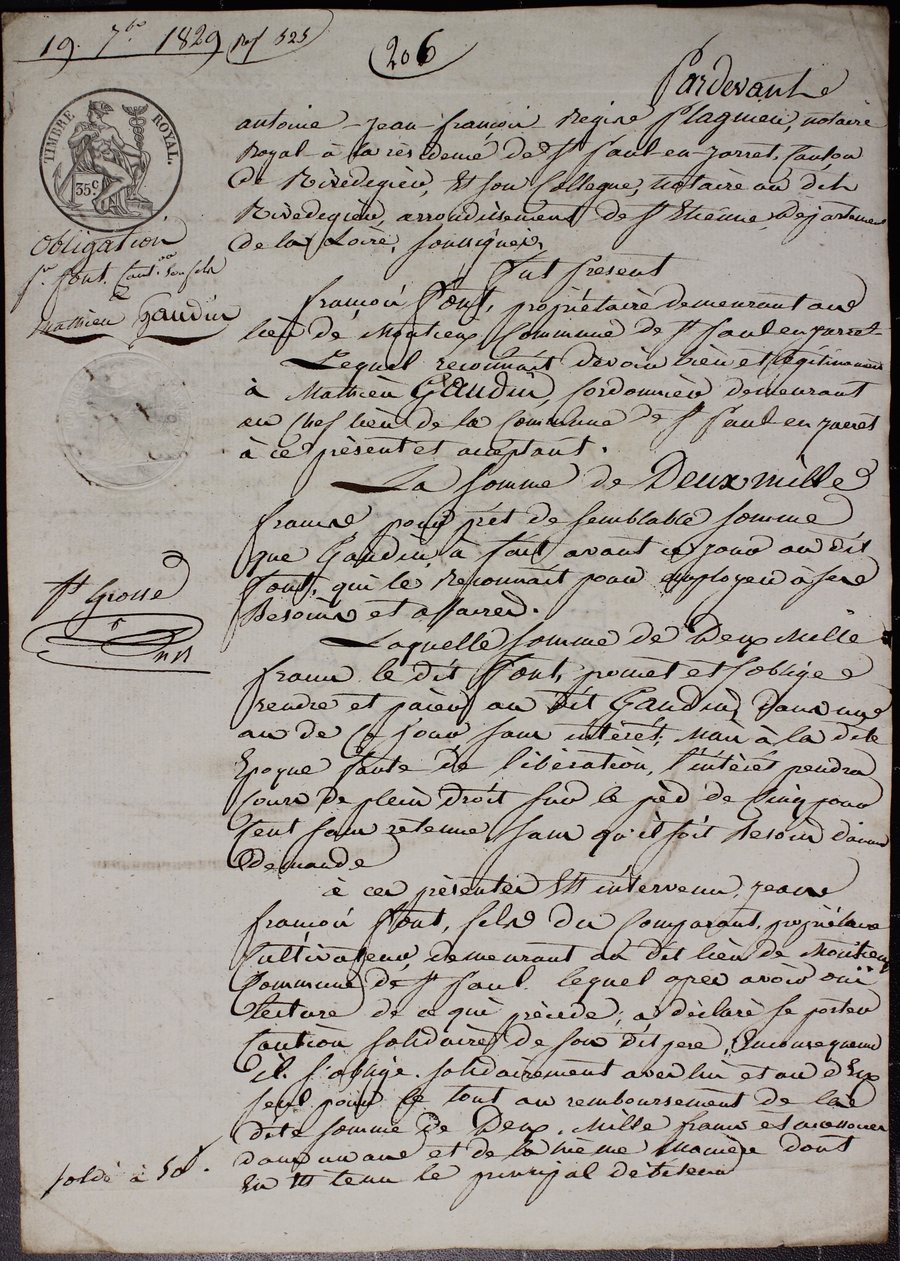 19. 7bre 1829 Ref 525
206
TIMBRE ROYAL.
35 c.
Obligation
Sr font cautn son fils
à
Mathieu Gaudin
Pardevant
antoine jean françois Régire Plagnieu, notaire
Royal à la résidence de St Paul en jarret, Canton
de Rivedegier, et son Collegue, notaire au dit
Rivedegier, arrondissement de St Etienne, Département
de la Loire, soussignés,
Fut Présent
françois Font, propriétaire demeurant au
lieu de Montieux Commune de St Paul en jarret
Lequel reconnait devoir bien et légitimement
à Mathieu Gaudin, Cordonnier demeurant
au Chef lieu de la Commune de St Paul en jarret
à ce présent et acceptant.
La Somme de Deux mille
francs pour prêt de semblable somme
que Gaudin, à fait avant ce jour au dit
Font, qui le reconnait pour employer à ses
Besoins et affaires.
ft Grosse
Laquelle somme de Deux Mille
francs le dit Font, promet et s'oblige
rendre et païer au dit Gaudin, dans une
an de ce jour sans intérêt, Mais à la dite
Epoque faute de libération, l'intérêt prendra
Cours de plein droit sur le pied de Cinq pour
Cent sans retenue, sans qu'il soit Besoin d'aucune
demande
à ces présentes Est intervenu, jean
françois Font, fils du Comparant, propriétaire
Cultivateur, demeurant au dit lieu de Montieux
Commune de St Paul. lequel après avoir oui
lecture de ce qui précède, a déclaré se porter
Caution solidaire de son dit pere, En consequence
il s'oblige solidairement avec lui et un d'Eux
seul pour le tout au remboursement de la
dite somme de Deux Mille francs et accessoires
dans un an et de la même Manière dont
En Est tenu le principal débiteur
soldé à 50f.